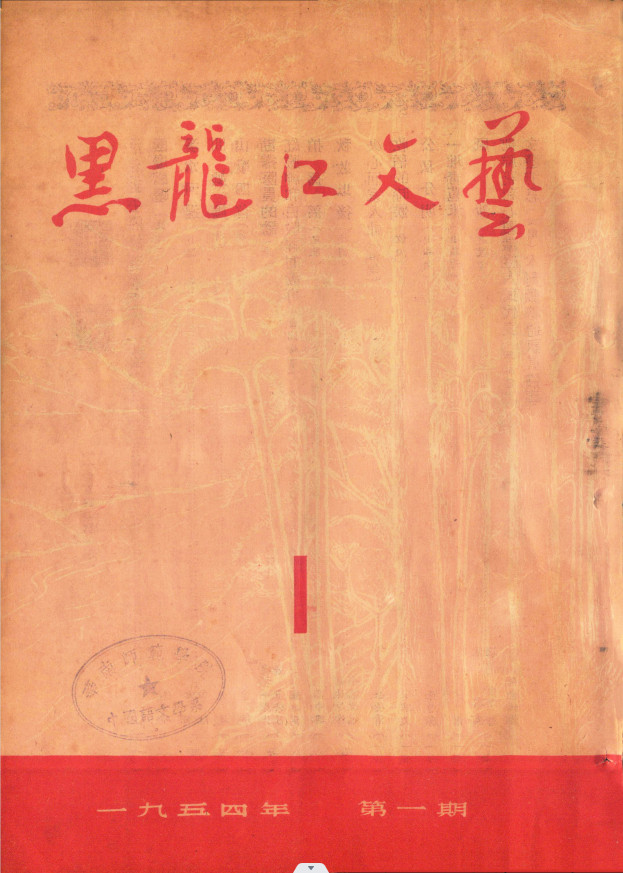 黑龍江文藝
1
一九五四年 第一期